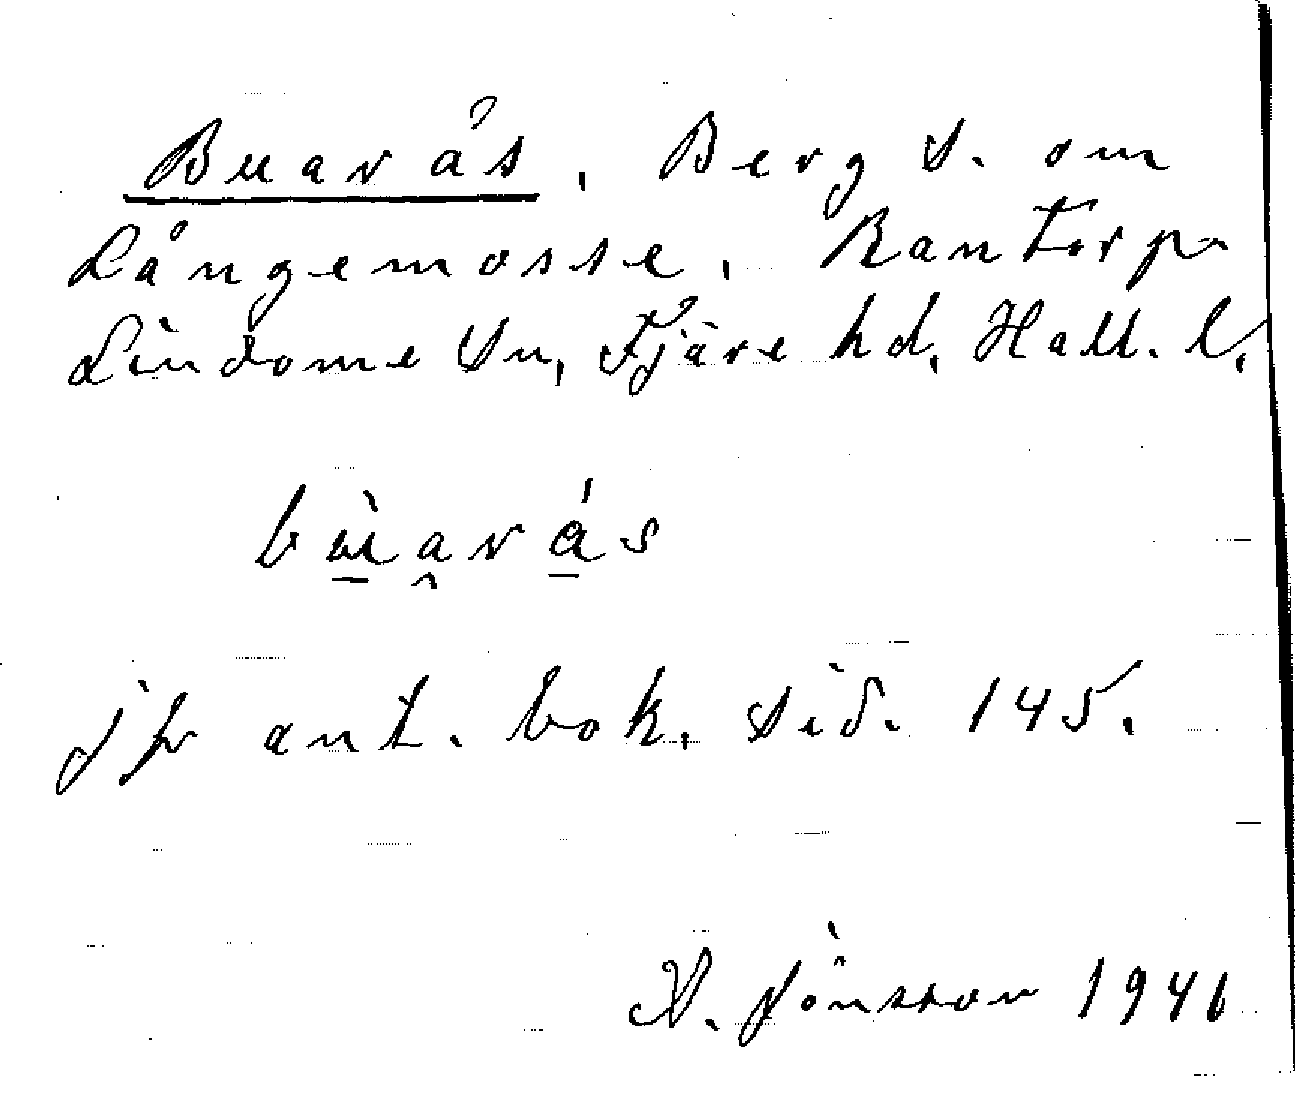 Buarås, Berg S. om
Långemosse, Rantorp
Lindome Sn, Fjäre hd, Hall. l.
bùarås
jfr ant. bok. sid. 145.
A. Jönsson 1946